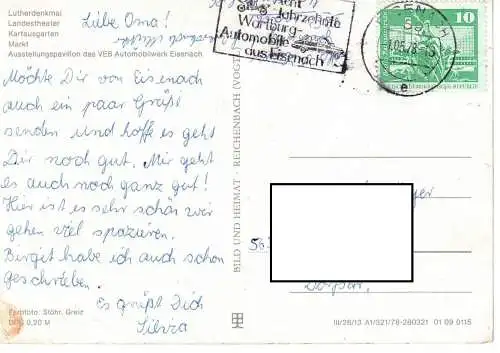 Lutherdenkmal
Landestheater
Kartausgarten
Markt
Ausstellungspavillon des VEB Automobilwerk Eisenach
Liebe Oma!
Möchte Dir von Eisenach
auch ein paar Grüße
senden und hoffe es geht
Dir noch gut. Mir geht
es auch noch ganz gut!
Hier ist es sehr schön wir
gehen viel spazieren.
Birgit habe ich auch schon
geschrieben.
Es grüßt Dich
Silvia
Farbfoto: Stöhr, Greiz
0,20 M
BILD UND HEIMAT · REICHENBACH (VOGTL
Jahrzehnte
Wartburg
Automobile
aus Eisenach
10
III/26/13 A1/321/78-280321 01 09 0115